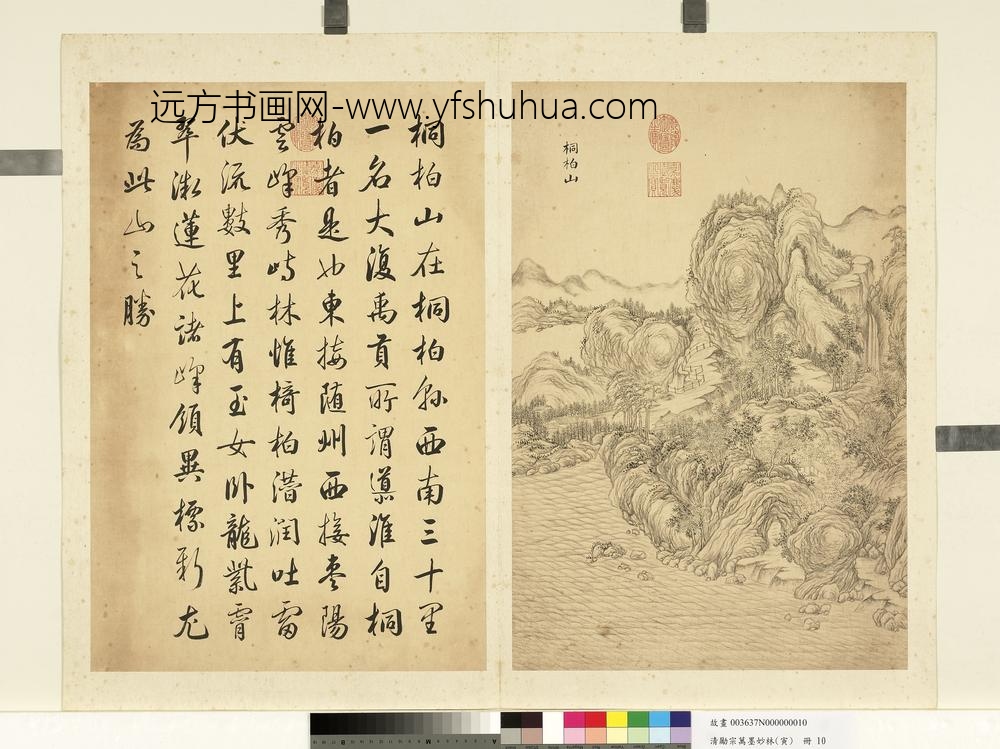 远方书画网-www.yfshuhua.com
桐柏山
桐柏山在桐柏縣西南三十里
一名大復禹貢所謂導淮自桐
柏者是也東接随州西接枣陽
雲峰秀峙林惟椅柏潜润吐雷
伏流數里上有玉女卧龍紫霄
翠微蓮花諸峰領異標新尤
為此山之勝
故畫 003637N000000010
清勵宗萬墨妙林(寅) 冊 10